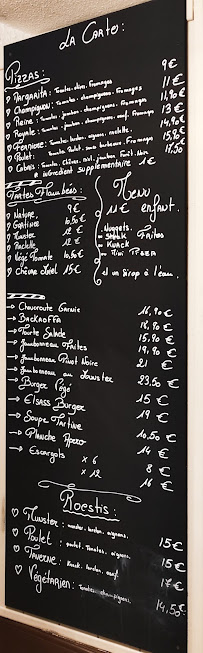 La Carte :
Pizzas :
♡ Margarita : Tomates, olives, Fromages 9€
♡ Champignon : Tomates, champignons, Fromages 11€
♡ Reine : Tomates, jambon, champignons, Fromages 11,90€
♡ Royale : Tomates, jambon, champignons, oeuf, Fromage 13€
♡ Fermière : Tomates, lardons, oignons 14,90€
♡ Poulet : Tomates, Poulet 15,90€
♡ Cabris : Tomates, Chèvre, miel, jambon 17,50€
* ingrédient supplémentaire 1€
Tartes Flambées :
♡ Nature 9€
♡ Gratinée 10,50€
♡ Munster 12€
♡ Raclette 12€
♡ Végé Tomate 10,50€
♡ Chèvre miel 15€
Menu enfant.
11€
- Nuggets.
- Steak Frites
- Knack
- Mini Pizza
et un Sirop à l'eau.
→ Choucroute Garnie 16,90€
→ Baekaoffa 18,90€
→ Tourte Salade 15,90€
→ Jambonneau Frites 19,90€
→ Jambonneau Pinot Noire 21€
→ Jambonneau au Munster 23,50€
→ Burger Végé 15€
→ Elsass Burger 19€
→ Soupe Tartine 10,50€
→ Planche Apéro 14€
→ Escargots x 6 8€
x 12 16€
Roestis :
♡ Munster : munster, lardons, oignons. 15€
♡ Poulet : poulet, Tomates, oignons. 15€
♡ Taverne : Knack, lardons, oeuf. 17€
♡ Végétarien : Tomates, champignons. 14,50€